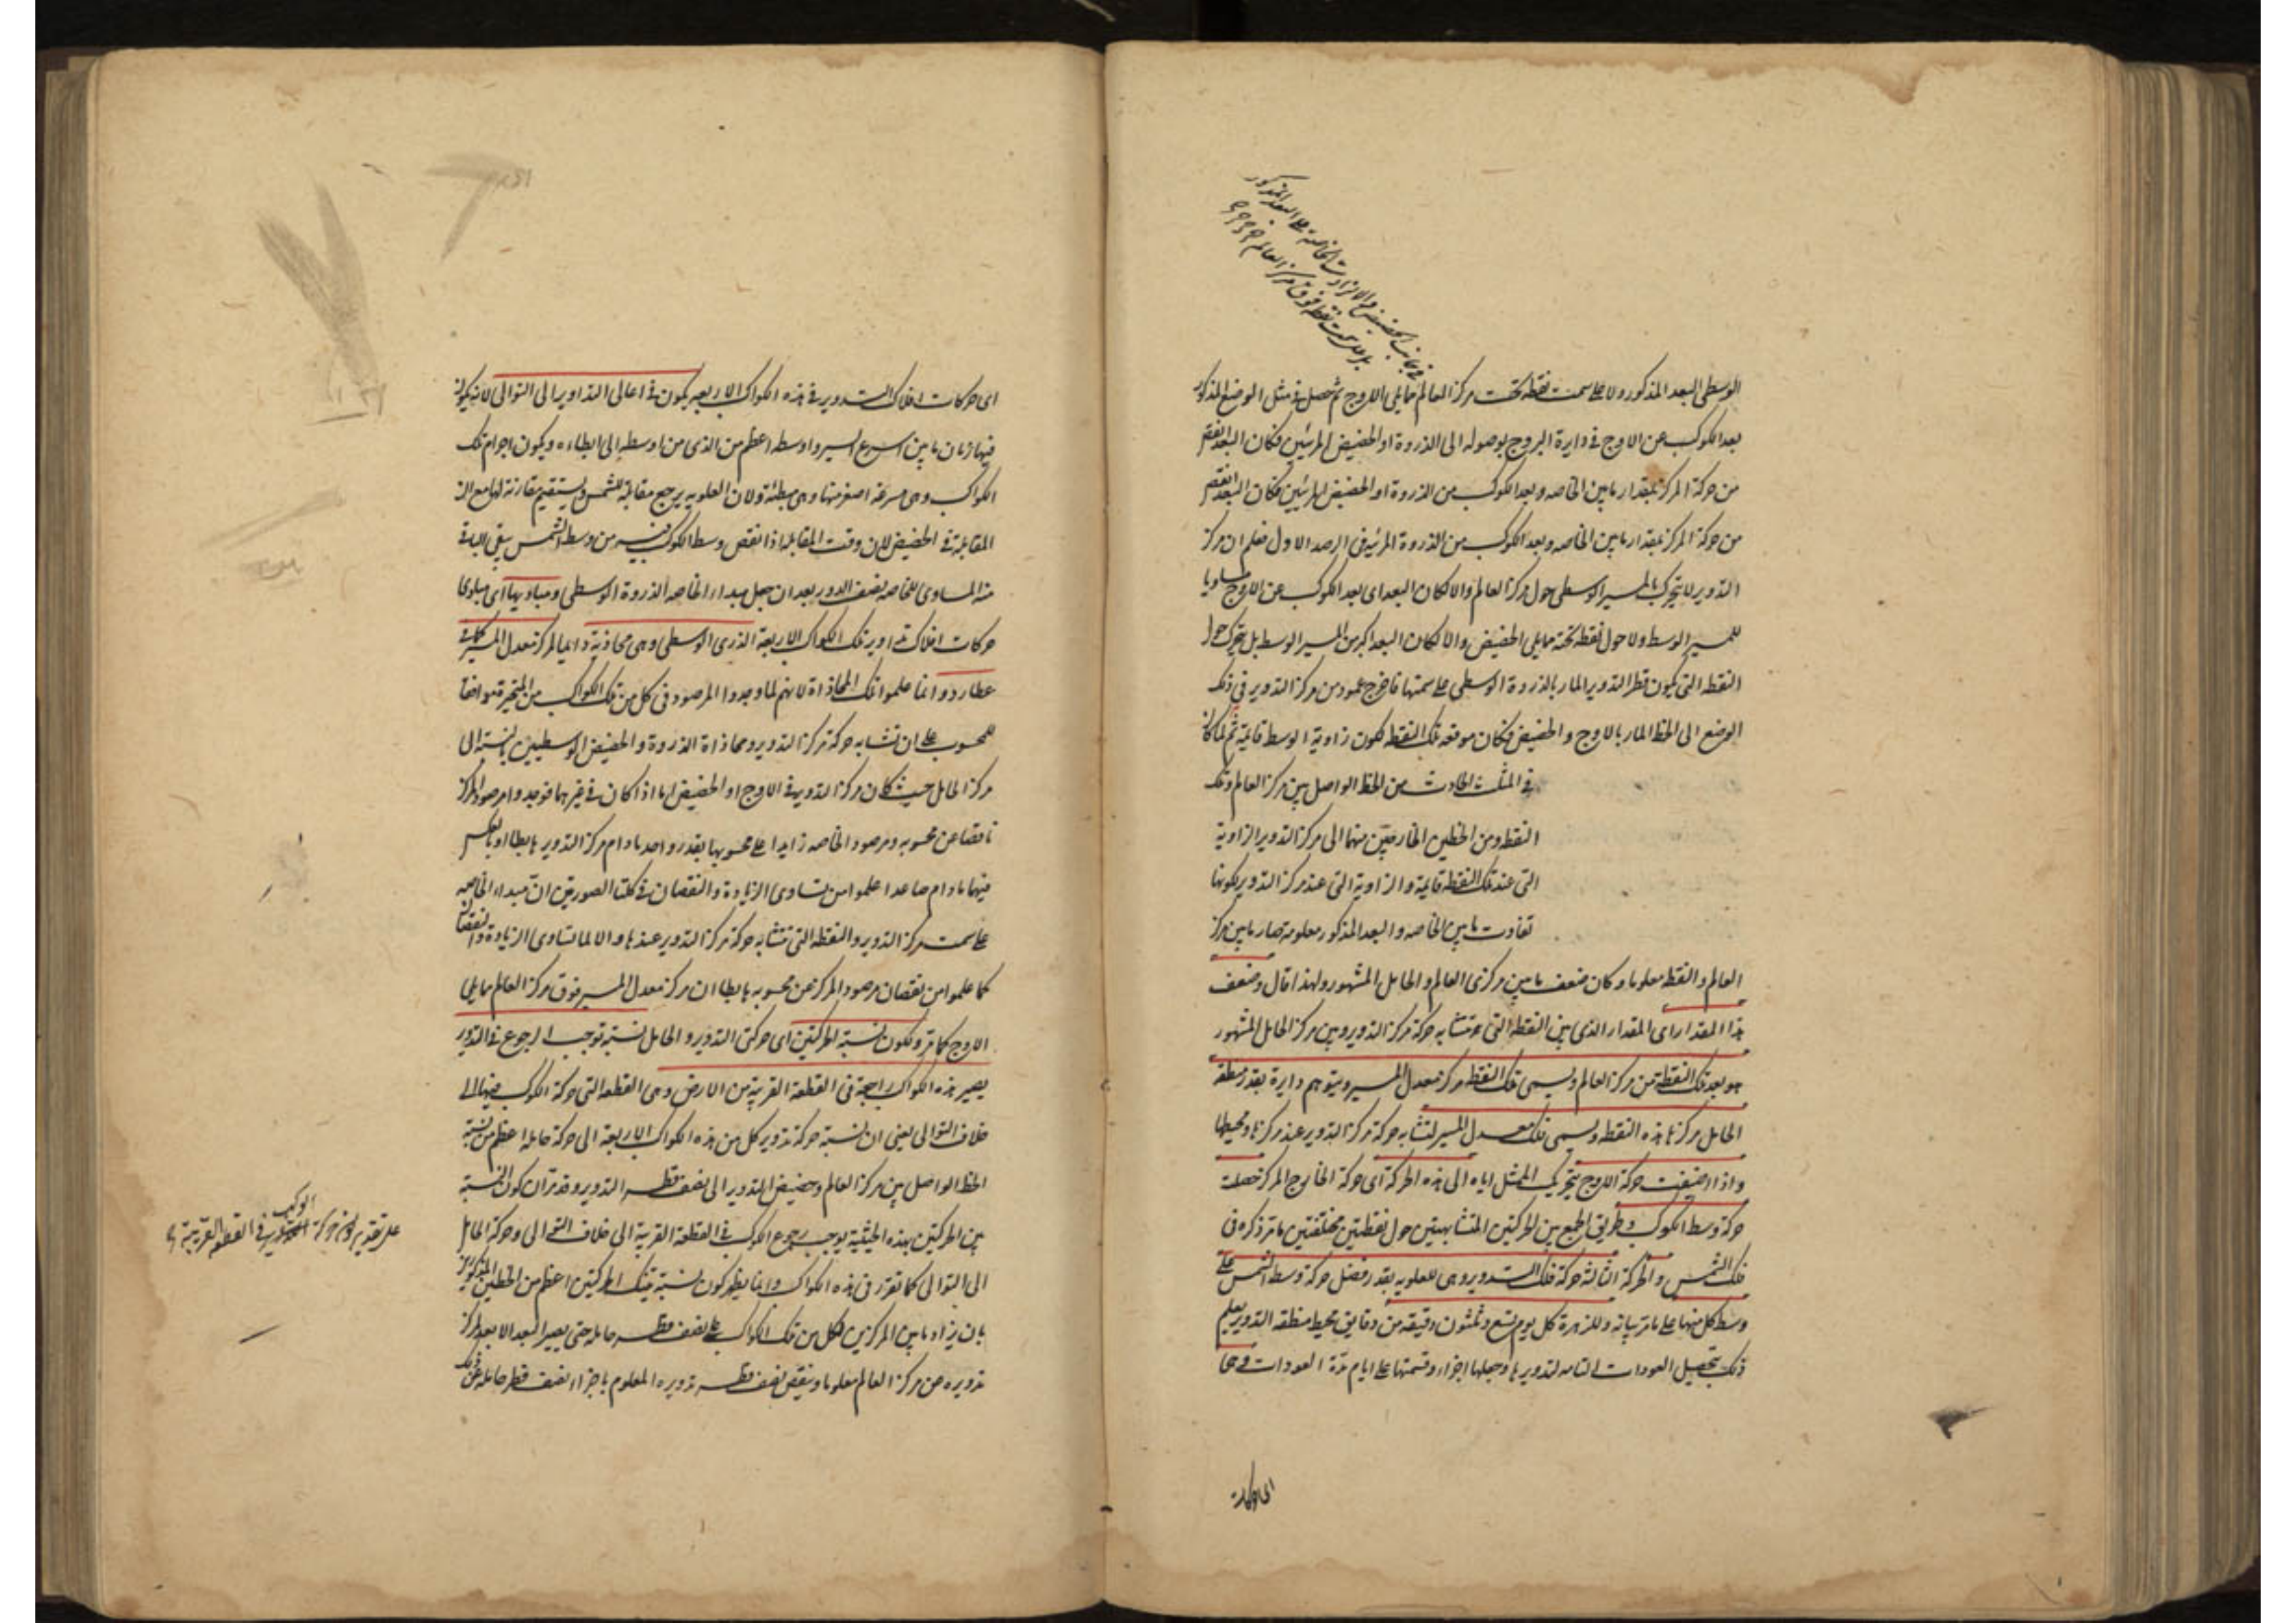 الوسطى البعد المذكور ولا على سمت نقطة تحت مركز العالم مما يلى الاوج ثم حصل فى مثل الوضع المذكور
بعد الكوكب عن الاوج فى دايرة البروج بوصوله الى الذروة او الحضيض المرئيين فكان البعد انقص
من حركة المركز بمقدار ما بين الخاصه وبعد الكوكب من الذروة او الحضيض المرئيين فكان البعد انقص
من حركة المركز بمقدار ما بين الخاصه وبعد الكوكب من الذروة المرئيه فى الرصد الاول فعلم ان مركز
التدوير لا يتحرك بالمسير الوسطى حول مركز العالم والا لكان البعد اى بعد الكوكب عن الاوج مساويا
للمسير الوسط ولا حول نقطة تحته مما يلى الحضيض والا لكان البعد اكبر من المسير الوسط بل يتحرك حول
النقطه التى يكون قطر التدوير المار بالذروة الوسطى على سمتها فاخرج عمود من مركز التدوير فى ذلك
الوضع الى الخط المار بالاوج والحضيض فكان موقعه تلك النقطه لكون زاوية الوسط قايمة ثم لما كان
فى المثلث الحادث من الخط الواصل بين مركز العالم وتلك
النقطه ومن الخطين الخارجين منهما الى مركز التدوير الزاوية
التى عند تلك النقطه قايمة والزاوية التى عند مركز التدوير لكونها
تفاوت ما بين الخاصه والبعد المذكور معلومة صار ما بين مركز
العالم والنقطه معلوما وكان ضعف ما بين مركزى العالم والحامل المشهور ولهذا قال وضعف
هذا المقدار اى المقدار الذى بين النقطه التى تتشابه حركة مركز التدوير وبين مركز الحامل المشهور
هو بعد تلك النقطة من مركز العالم ويسمى تلك النقطه مركز معدل المسير ويتوهم دايرة بقدر منطقة
الحامل مركزها هذه النقطه ويسمى فلك معدل المسير لتشابه حركة مركز التدوير عند مركزها ومحيطها
واذا اضيفت حركة الاوج بتحريك الممثل اياه الى هذه الحركة اى حركة الخارج المركز حصلت
حركة وسط الكوكب وطريق الجمع بين الحركتين المتشابهتين حول نقطتين مختلفتين ما مر ذكره فى
فلك الشمس والحركة الثالثة حركة فلك التدوير وهى للعلويه بقدر فضل حركة وسط الشمس على
وسط كل منها على ما مر بيانه وللزهرة كل يوم تسع وثلثون دقيقه من دقايق محيط منطقه التدوير يعلم
ذلك بتحصيل العودات التامه لتدويرها وجعلها اجزاء وقسمتها على ايام مدة العودات وهى
اى حركات افلاك التدوير فى هذه الكواكب الاربعه يكون فى اعالى التداوير الى التوالى لانه يكون
فيها زمان ما بين اسرع السير واوسطه اعظم من الذى من اوسطه الى ابطاءه ويكون اجرام تلك
الكواكب وهى مسرعة اصغر منها وهى مبطئة ولان العلويه يرجع مقابلة للشمس ويستقيم مقارنة لها مع ان
المقابلة فى الحضيض لان وقت المقابله اذا نقص وسط الكوكب من وسط الشمس بقى الباقى
منه المساوى للخاصه نصف الدور بعد ان جعل مبداء الخاصه الذروة الوسطى ومباديها اى مبادى
حركات افلاك تداوير تلك الكواكب الاربعة الذرى الوسطى وهى محاذية دايما لمركز معدل المسير كما فى
عطارد وانما علموا تلك المحاذاة لانهم لما وجدوا المرصود فى كل من تلك الكواكب من المتحيرة موافقا
للمحسوب على ان تشابه حركة مركز التدوير ومحاذاة الذروة والحضيض الوسطيين بالنسبة الى
مركز الحامل حيث كان مركز التدوير فى الاوج او الحضيض اما اذا كان فى غيرهما فوجدوا مرصود المركز
ناقصا عن محسوبه ومرصود الخاصه زايدا على محسوبها بقدر واحد ما دام مركز التدوير هابطا او بالعكس
فيهما ما دام صاعدا علموا من تساوى الزيادة والنقصان فى كلتا الصورتين ان مبداء الخاصه
على سمت مركز التدوير والنقطه التى تتشابه حركة مركز التدوير عندها والا لما تساوى الزيادة والنقصان
كما علموا من نقصان مرصود المركز عن محسوبه هابطا ان مركز معدل المسير فوق مركز العالم مما يلى
الاوج كما مر ولكون نسبة الحركتين اى حركتى التدوير والحامل نسبة توجب الرجوع فى التدوير
يصير هذه الكواكب راجعة فى القطعة القريبة من الارض وهى القطعه التى حركة الكوكب فيها الى
خلاف التوالى يعنى ان نسبة حركة تدوير كل من هذه الكواكب الاربعة الى حركة حامله اعظم من نسبة
الخط الواصل بين مركز العالم وحضيض التدوير الى نصف قطر التدوير وقد مر ان كون النسبة
بين الحركتين بهذه الحيثية يوجب رجوع الكوكب فى القطعة القريبة الى خلاف التوالى وحركة الحامل
الى التوالى كما تقرر فى هذه الكواكب وانما يظهر كون نسبة تينك الحركتين اعظم من الخطين المذكورين
بان يزاد ما بين المركزين لكل من تلك الكواكب على نصف قطر حامله حتى يصير البعد الابعد لمركز
تدويره من مركز العالم معلوما وينقص نصف قطر تدويره المعلوم باجزاء نصف قطر حامله عن ذلك